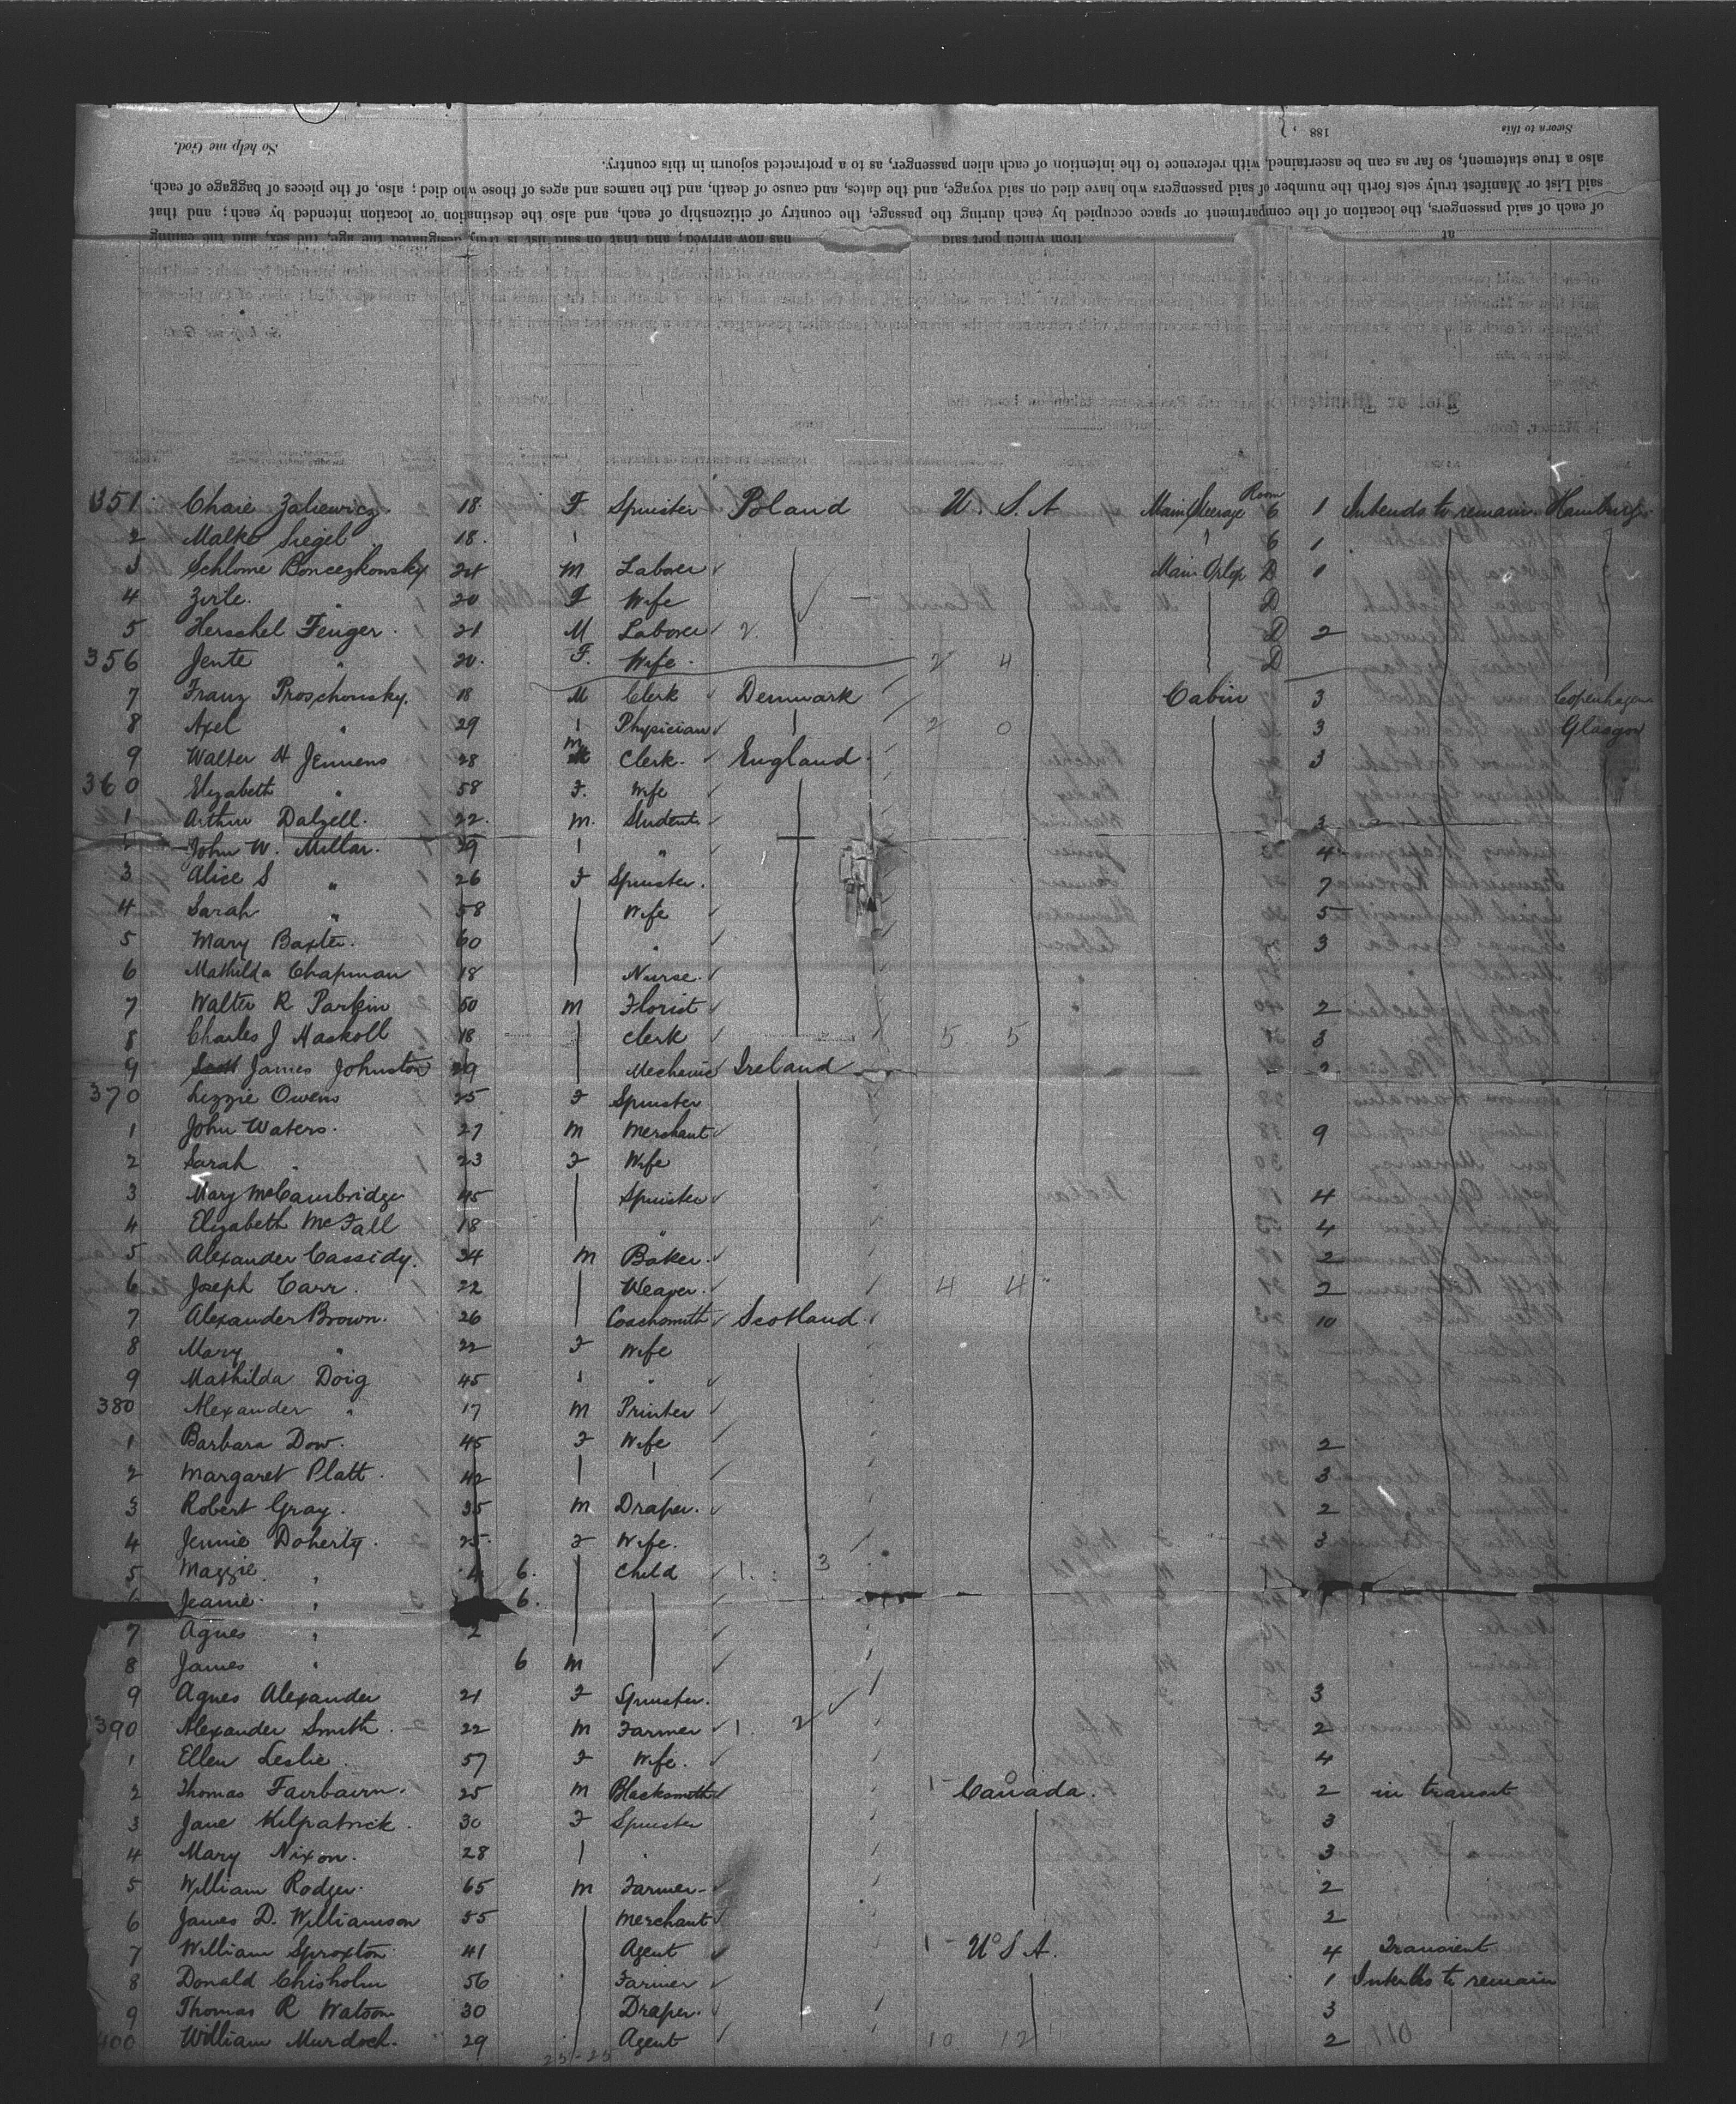 Sworn to this 188 , }
So help me God.
also a true statement, so far as can be ascertained, with reference to the intention of each alien passenger, as to a protracted sojourn in this country.
said List or Manifest truly sets forth the number of said passengers who have died on said voyage, and the dates, and cause of death, and the names and ages of those who died; also, of the pieces of baggage of each,
of each of said passengers, the location of the compartment or space occupied by each during the passage, the country of citizenship of each, and also the destination or location intended by each; and that
at from which port said has now arrived; and that on said list is truly designated the age, the sex, and the calling
351 Chaie Zaliewicz. 18. F Spinster Poland U. S. A Main Steerage Room 6 1 Intends to remain. Hamburg.
2 Malke Siegel 18. " 6 1
3 Schlome Bonczezkowsky 24 M Laborer Main Orlop D 1
4 Zirle. " 20 F Wife D
5 Herschel Feuger. 21 M Laborer 2 D 2
356 Jente " 20. F. Wife. 2 4 D
7 Franz Proschowsky. 18 M Clerk Denmark Cabin 3 Copenhagen
8 Axel " 29 Physician 2 0 3 Glasgow
9 Walter H Jennens 28 M Clerk. England. 3
360 Elizabeth " 58 F. Wife
1 Arthur Dalzell. 22. M. Student 3
John W. Millar. 29 " 4
3 Alice S " 26 F Spinster. 7
4 Sarah " 58 Wife 5
5 Mary Baxter. 60 " 3
6 Mathilda Chapman 18 Nurse.
7 Walter R Parkin 50 M Florist 2
8 Charles J Haskoll 18 Clerk 5 5 3
9 James Johnston 29 Mechanic Ireland 2
370 Lizzie Owens 25 F Spinster
1 John Waters. 27 M Merchant 9
2 Sarah " 23 F Wife
3 Mary McCambridge 45 Spinster 4
4 Elizabeth McFall 18 " 4
5 Alexander Cassidy. 34 M Baker. 2
6 Joseph Carr. 22 Weaver. 4 4 2
7 Alexander Brown. 26 Coachsmith Scotland. 10
8 Mary " 22 F Wife
9 Mathilda Doig 45 " "
380 Alexander " 17 M Printer
1 Barbara Dow. 45 F Wife 2
2 Margaret Platt. 42 3
3 Robert Gray. 35 M Draper. 2
4 Jennie Doherty. 25. F Wife. 3
5 Maggie " 4 6. Child 1. 3
Jeanie. " 6.
7 Agnes " 2
8 James " 6 M
9 Agnes Alexander 21 F Spinster. 3
390 Alexander Smith. 22 M Farmer 1. 2 2
1 Ellen Leslie. 57 F Wife. 4
2 Thomas Fairbairn. 25 M Blacksmith 1 Canada. 2 in transit
3 Jane Kilpatrick. 30 F Spinster 3
4 Mary Nixon. 28 " 3
5 William Rodger. 65 M Farmer 2
6 James D. Williamson 55 Merchant 2
7 William Sproxton 41 Agent 1 U S A. 4 Transient
8 Donald Chisholm 56 Farmer 1 Intends to remain
9 Thomas R Watson 30 Draper. 3
400 William Murdoch. 29 Agent 10 12 2 110
25-25